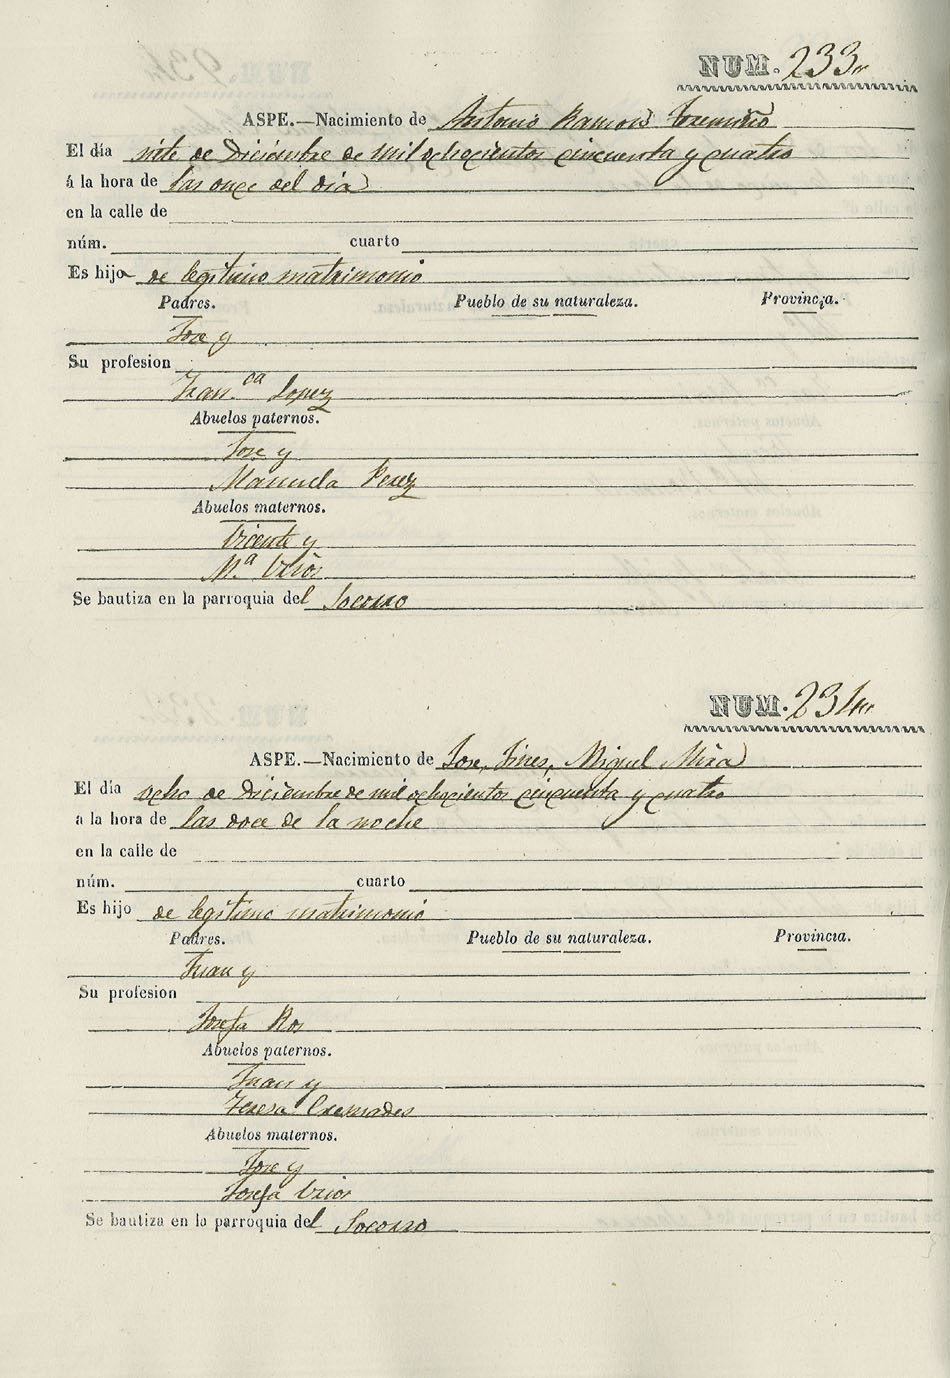 NUM. 233
ASPE.—Nacimiento de Antonio Ramon Cremiño
El día siete de Diciembre de mil ochocientos cincuenta y cuatro
á la hora de las once del dia
en la calle de
núm. cuarto
Es hijo de legitimo matrimonio
Padres. Pueblo de su naturaleza. Provincia.
Jose y
Su profesion
Fran.ca Lopez
Abuelos paternos.
Jose y
Manuela Perez
Abuelos maternos.
Vicente y
M.a Urios
Se bautiza en la parroquia del Socorro
NUM. 234
ASPE.—Nacimiento de Jose, Gines, Miguel Mira
El día ocho de Diciembre de mil ochocientos cincuenta y cuatro
a la hora de las doce de la noche
en la calle de
núm. cuarto
Es hijo de legitimo matrimonio
Padres. Pueblo de su naturaleza. Provincia.
Juan y
Su profesion
Josefa Ros
Abuelos paternos.
Juan y
Teresa Cremades
Abuelos maternos.
Jose y
Josefa Urios
Se bautiza en la parroquia del Socorro